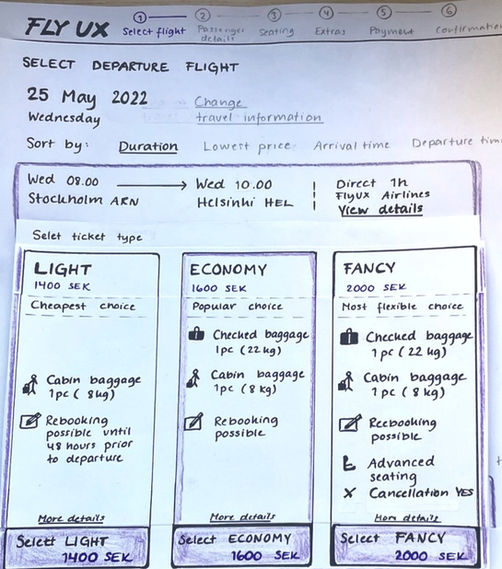 FLY UX
1 2 3 4 5 6
Select flight Passenger details Seating Extras Payment Confirmation
SELECT DEPARTURE FLIGHT
25 May 2022
Wednesday
Change
travel information
Sort by: Duration Lowest price Arrival time Departure tim
Wed 08.00 Wed 10.00 Direct 1h
Stockholm ARN Helsinki HEL FlyUX Airlines
View details
Selet ticket type
LIGHT
1400 SEK
Cheapest choice
Cabin baggage
1pc ( 8kg)
Rebooking
possible until
48 hours prior
to departure
More details
Select LIGHT
1400 SEK
ECONOMY
1600 SEK
Popular choice
Checked baggage
1pc (22kg)
Cabin baggage
1pc (8 kg)
Rebooking
possible
More details
Select ECONOMY
1600 SEK
FANCY
2000 SEK
Most flexible choice
Checked baggage
1 pc (22 kg)
Cabin baggage
1 pc (8 kg)
Reebooking
possible
Advanced
seating
Cancellation YES
More details
Select FANCY
2000 SEK